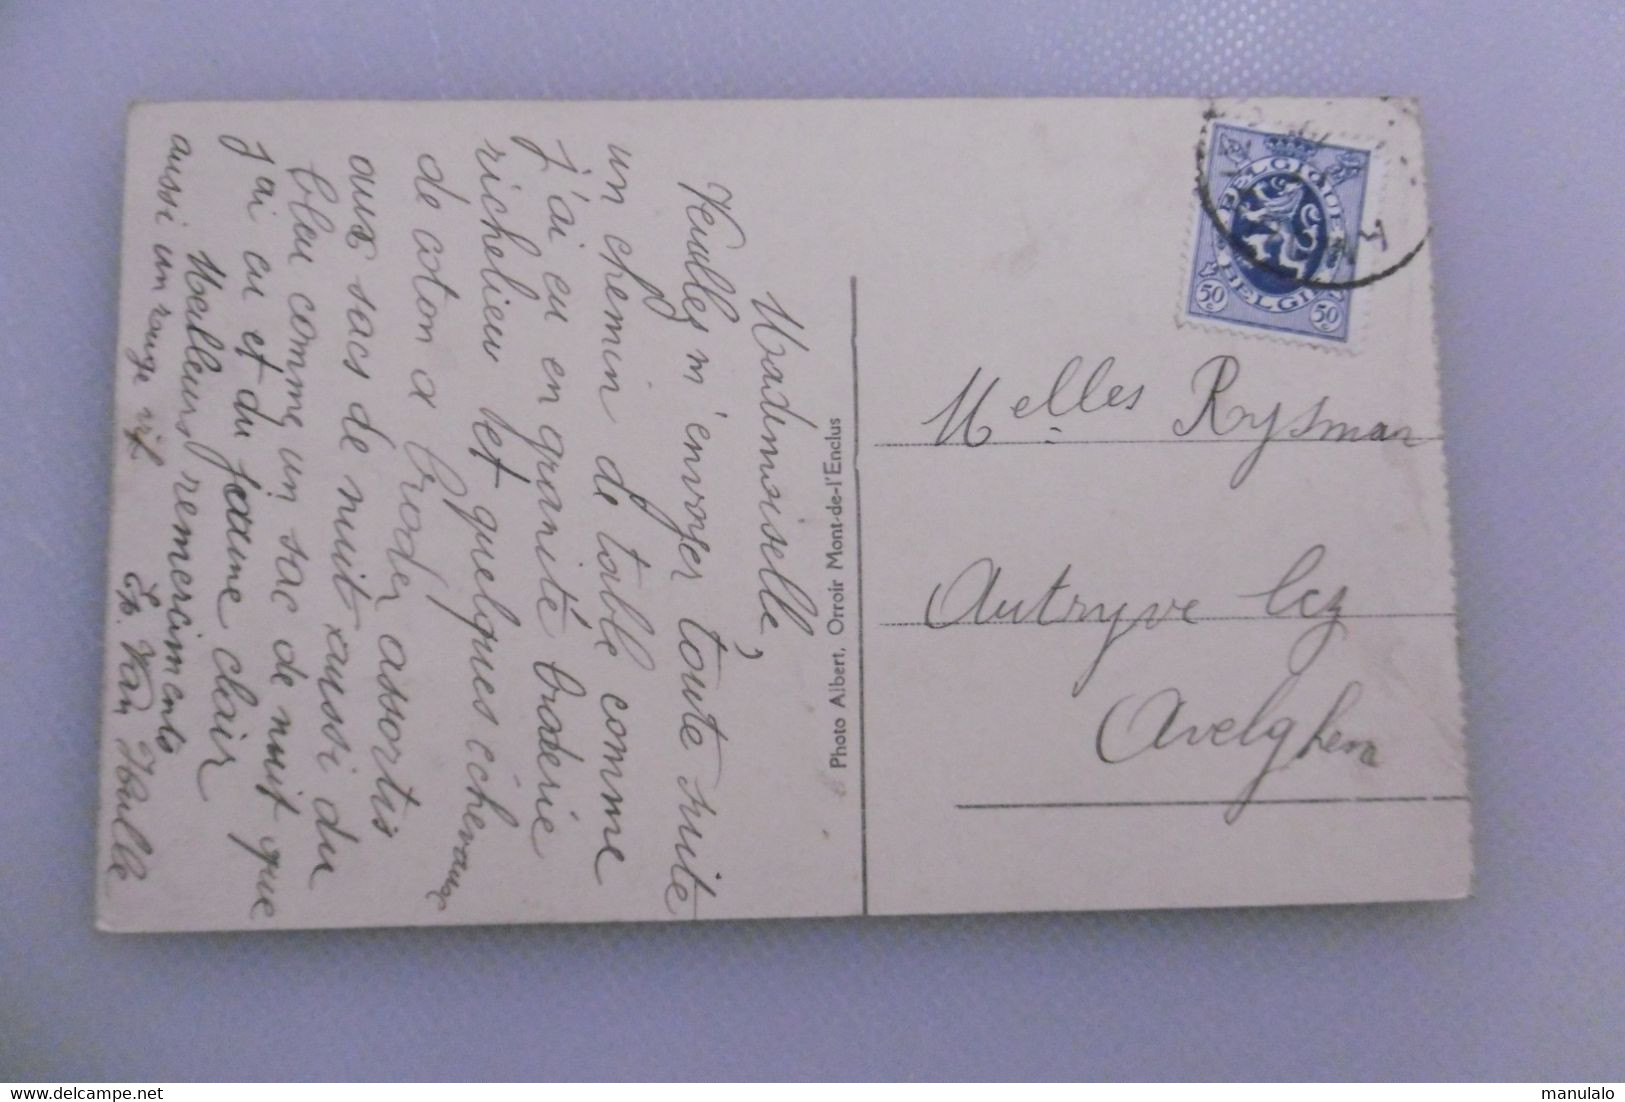 Mademoiselle,
Veuilles m'envoyer toute suite
un chemin de table comme
j'ai eu en granité broderie
richelieu et quelques écheveaux
de coton a broder assortis
aux sacs de nuit aussi du
bleu comme un sac de nuit que
j'ai eu et du jeaune clair
Meilleurs remerciments
aussi un rouge vif
Ep. Van Houlle
Photo Albert, Orroir Mont-de-l'Enclus
BELGIQUE
BELGIE
50c 50c
Melles Rysman
Autryve lez
Avelghem
www.delcampe.net
manulalo